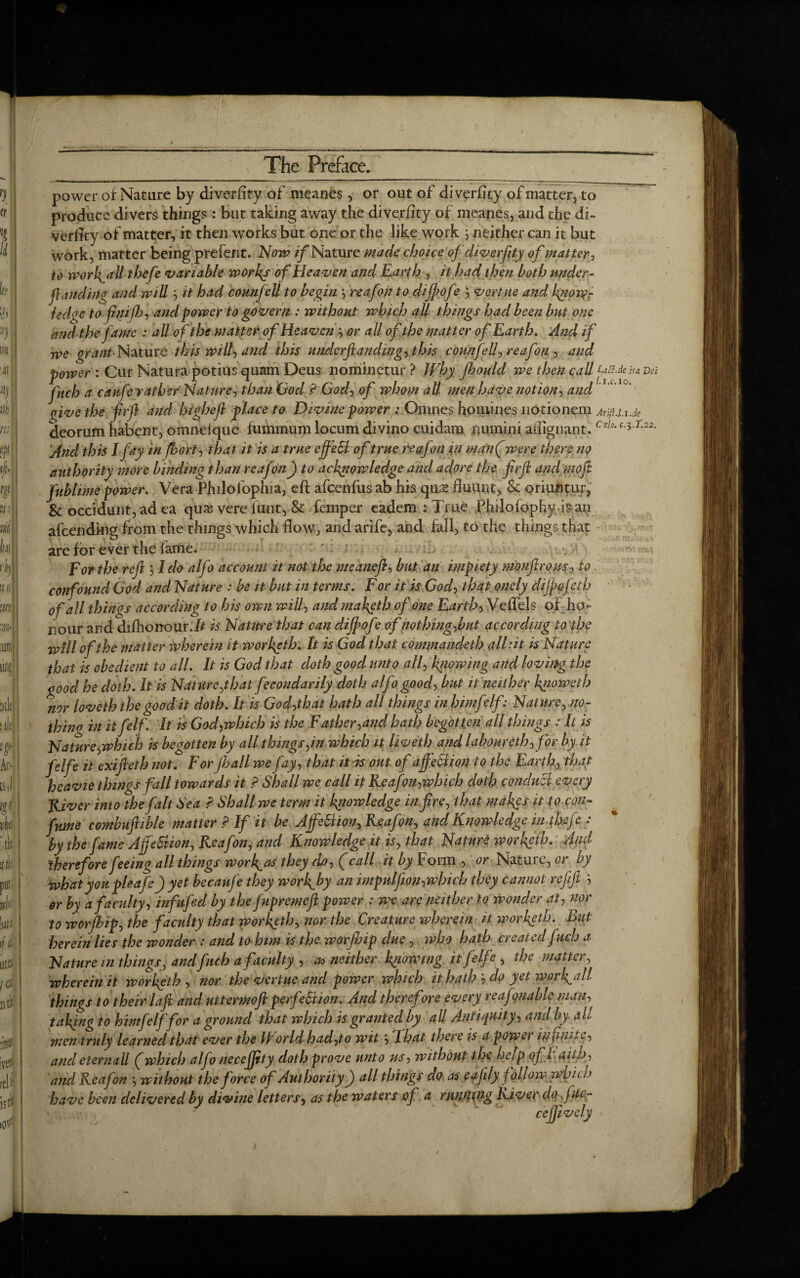 The Preface.
power of Nature by diverſity of meanes, or out of diverſity of matter, to
produce divers things: but taking away the diverſity of meanes, and the di-
verſity of matter, it then works but one or the like work; neither can it but
work, matter being preſent. Now if Nature made choice of diverſity of matter,
to work all theſe variable works of Heaven and Earth, it had then both under-
ſtanding and will; it had counſell to begin; reaſon to diſpoſe; vertue and know-
ledge to finiſh, and power to govern: without which all things had been but one
and the ſame: all of the matter of Heaven; or all of the matter of Earth. And if
we grant Nature this will, and this underſtanding, this counſell, reaſon, and
power: Cur Natura potius quam Deus nominetur? Why ſhould we then call
ſuch a cauſe rather Nature, than God? God, of whom all men have notion, and
give the firſt and higheſt place to Divine power: Omnes homines notionem
deorum habent, omneſque ſummum locum divino cuidam numini aſſignant.
And this I ſay in ſhort, that it is a true effect of true reaſon in man (were there no
authority more binding than reaſon) to acknowledge and adore the firſt and moſt
ſublime power. Vera Philoſophia, eſt aſcenſus ab his quæ fluunt, & oriuntur,
& occidunt, ad ea quæ vere ſunt, & ſemper eadem: True Philoſophy, is an
aſcending from the things which flow, and ariſe, and fall, to the things that
are for ever the ſame.
For the reſt; I do alſo account it not the meaneſt, but an impiety monſtrous, to
confound God and Nature: be it but in terms. For it is God, that onely diſpoſeth
of all things according to his own will, and maketh of one Earth, Veſſels of ho-
nour and diſhonour. It is Nature that can diſpoſe of nothing, but according to the
will of the matter wherein it worketh. It is God that commandeth all: it is Nature
that is obedient to all. It is God that doth good unto all, knowing and loving the
good he doth. It is Nature, that ſecondarily doth alſo good, but it neither knoweth
nor loveth the good it doth. It is God, that hath all things in himſelf: Nature, no-
thing in it ſelf. It is God, which is the Father, and hath begotten all things: It is
Nature, which is begotten by all things, in which it liveth and laboureth, for by it
ſelfe it exiſteth not. For ſhall we ſay, that it is out of affection to the Earth, that
heavie things fall towards it? Shall we call it Reaſon, which doth conduct every
River into the ſalt Sea? Shall we term it knowledge in fire, that makes it to con-
ſume combuſtible matter? If it be Affection, Reaſon, and Knowledge in theſe:
by the ſame Affection, Reaſon, and Knowledge it is, that Nature worketh. And
therefore ſeeing all things work as they do, (call it by Form, or Nature, or by
what you pleaſe) yet becauſe they work by an impulſion, which they cannot reſiſt;
or by a faculty, infuſed by the ſupremeſt power: we are neither to wonder at, nor
to worſhip, the faculty that worketh, nor the Creature wherein it worketh. But
herein lies the wonder: and to him is the worſhip due, who hath created ſuch a
Nature in things, and ſuch a faculty, as neither knowing it ſelfe, the matter,
wherein it worketh, nor the vertue and power which it hath; do yet work all
things to their laſt and uttermoſt perfection. And therefore every reaſonable man,
taking to himſelf for a ground that which is granted by all Antiquity, and by all
men truly learned that ever the World had, to wit; That there is a power infinite,
and eternall (which alſo neceſſity doth prove unto us, without the help of Faith,
and Reaſon; without the force of Authority) all things do as eaſily follow which
have been delivered by divine letters, as the waters of a running River do, ſuc-
ceſſively
Lact. de ira Dei
l.1.c.10.
Ariſt.l.1.de
cælo. c.3.T.22.